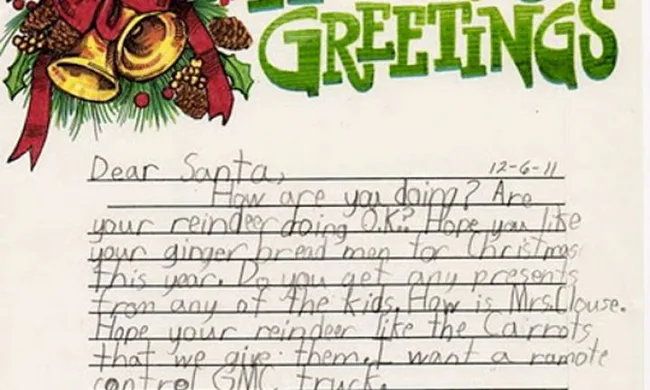 GREETINGS
Dear Santa, 12-6-11
How are you doing? Are
your reindeer doing O.K.? Hope you like
your ginger bread men for Christmas
this year. Do you get any presents
from any of the kids. How is Mrs. Clouse.
Hope your reindeer like the Carrots
that we give them. I want a ramote
control GMC truck.